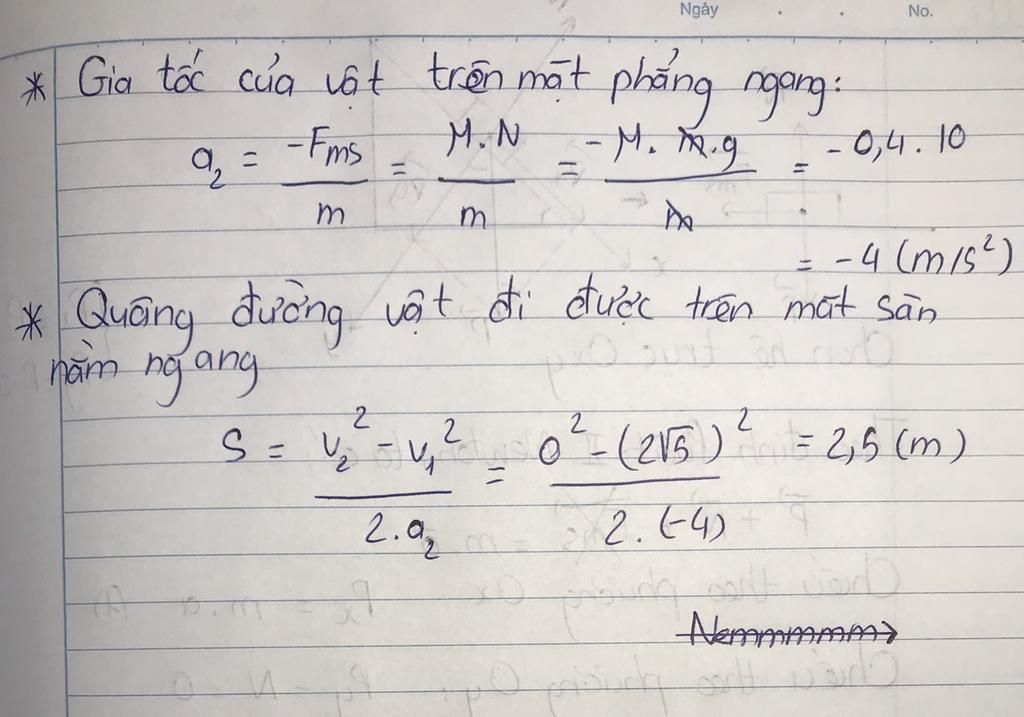 Ngày . . No.
* Gia tốc của vật trên mặt phẳng ngang:
a₂ = -Fms/m = μ.N/m = -μ.m.g/m = -0,4.10
= -4 (m/s²)
* Quãng đường vật đi được trên mặt sàn
nằm ngang
S = (v₂² - v₁²)/(2.a₂) = (0² - (2√5)²)/(2.(-4)) = 2,5 (m)